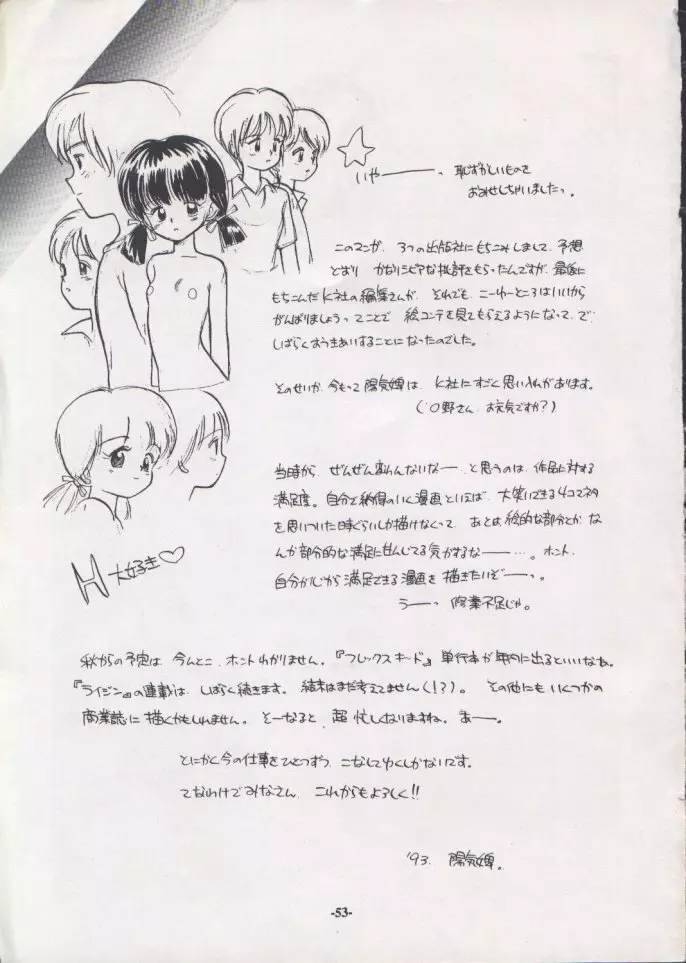 いやーーー。恥ずかしいものを
おみせしちゃいましたっ。
このマンガ、3つの出版社にもちこみしまして、予想
どおり かなりシビアな批評をもらったんですが、最後に
もちこんだK社の編集さんが、それでも、こーゆーところはいいから
がんばりましょうってことで 絵コンテを見てもらえるようになって、で、
しばらくおつきあいすることになったのでした。
そのせいか、今もって陽気婢は、K社にすごく思い入れがあります。
(〇野さん、お元気ですか?)
当時から、ぜんぜん変わんないなーー、と思うのは、作品に対する
満足度。自分で納得のいく漫画といえば、大笑いできる4コマネタ
を思いついた時ぐらいしか描けなくって、あとは絵的な部分とか、な
んか部分的な満足に甘んじてる気がするなーー…。ホント、
自分が心から満足できる漫画を描きたいぞーーっ。
うーーっ 修業不足じゃ。
H大好き♡
秋からの予定は、今んとこ、ホントわかりません。『フレックスキッド』単行本が年内に出るといいなぁ。
『ライジン』の連載は、しばらく続きます。結末はまだ考えてません(!?)。その他にもいくつかの
商業誌に描くかもしれません。そーなると、超 忙しくなりますね。まーー。
とにかく今の仕事をひとつずつ、こなしてゆくしかないです。
てなわけでみなさん、これからもよろしく!!
'93. 陽気婢。
-53-